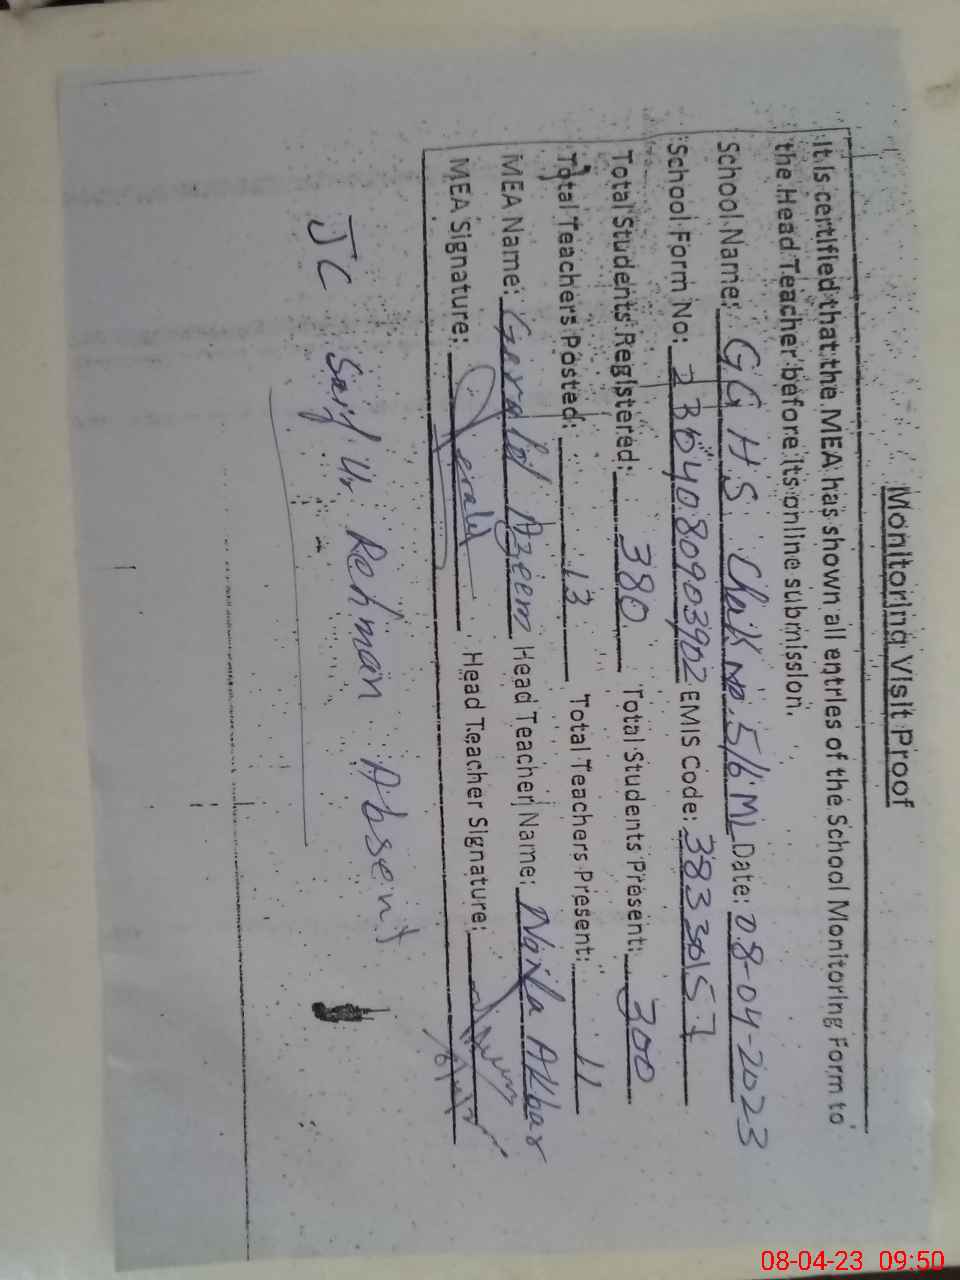 Monitoring Visit Proof
It is certified that the MEA has shown all entries of the School Monitoring Form to
the Head Teacher before its online submission.
School Name: GGHS Chak No. 5/6 ML Date: 08-04-2023
School Form No: 2304080903902 EMIS Code: 38330157
Total Students Registered: 380 Total Students Present: 300
Total Teachers Posted: 13 Total Teachers Present: 11
MEA Name: Gerald Azeem Head Teacher Name: Naila Akbar
MEA Signature: Gerald Head Teacher Signature:
JC Saif Ur Rehman Absent
08-04-23 09:50